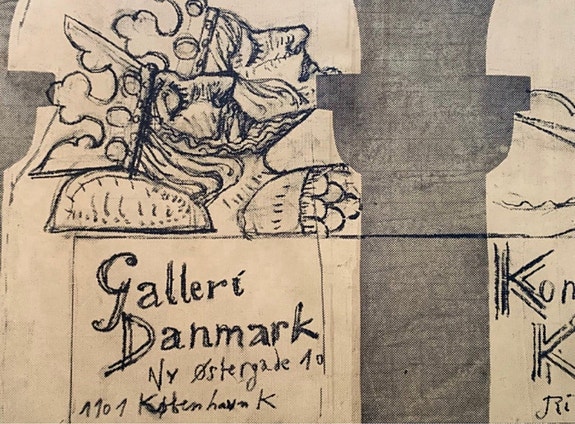 Galleri
Danmark
Ny Østergade 10
1101 København K
Kon
K